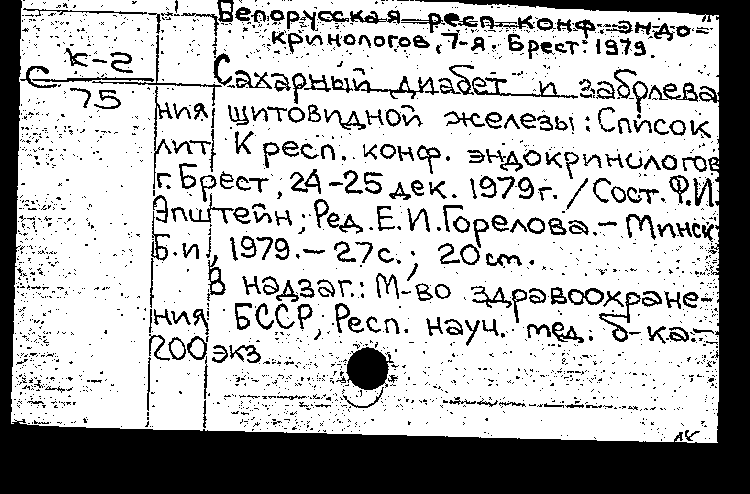 Белорусская респ. конф. эндо-
кринологов, 7-я. Брест. 1979.
С К-2
75
Сахарный диабет и заболева
ния щитовидной железы: Список
лит. К респ. конф. эндокринологов
г. Брест, 24-25 дек. 1979г. / Сост. Ф.И.
Эпштейн; Ред. Е.И.Горелова.- Минск
Б.и., 1979.- 27с.; 20 cm.
В надзаг.: М-во здравоохране-
ния БССР, Респ. науч. мед. б-ка.-
200 экз